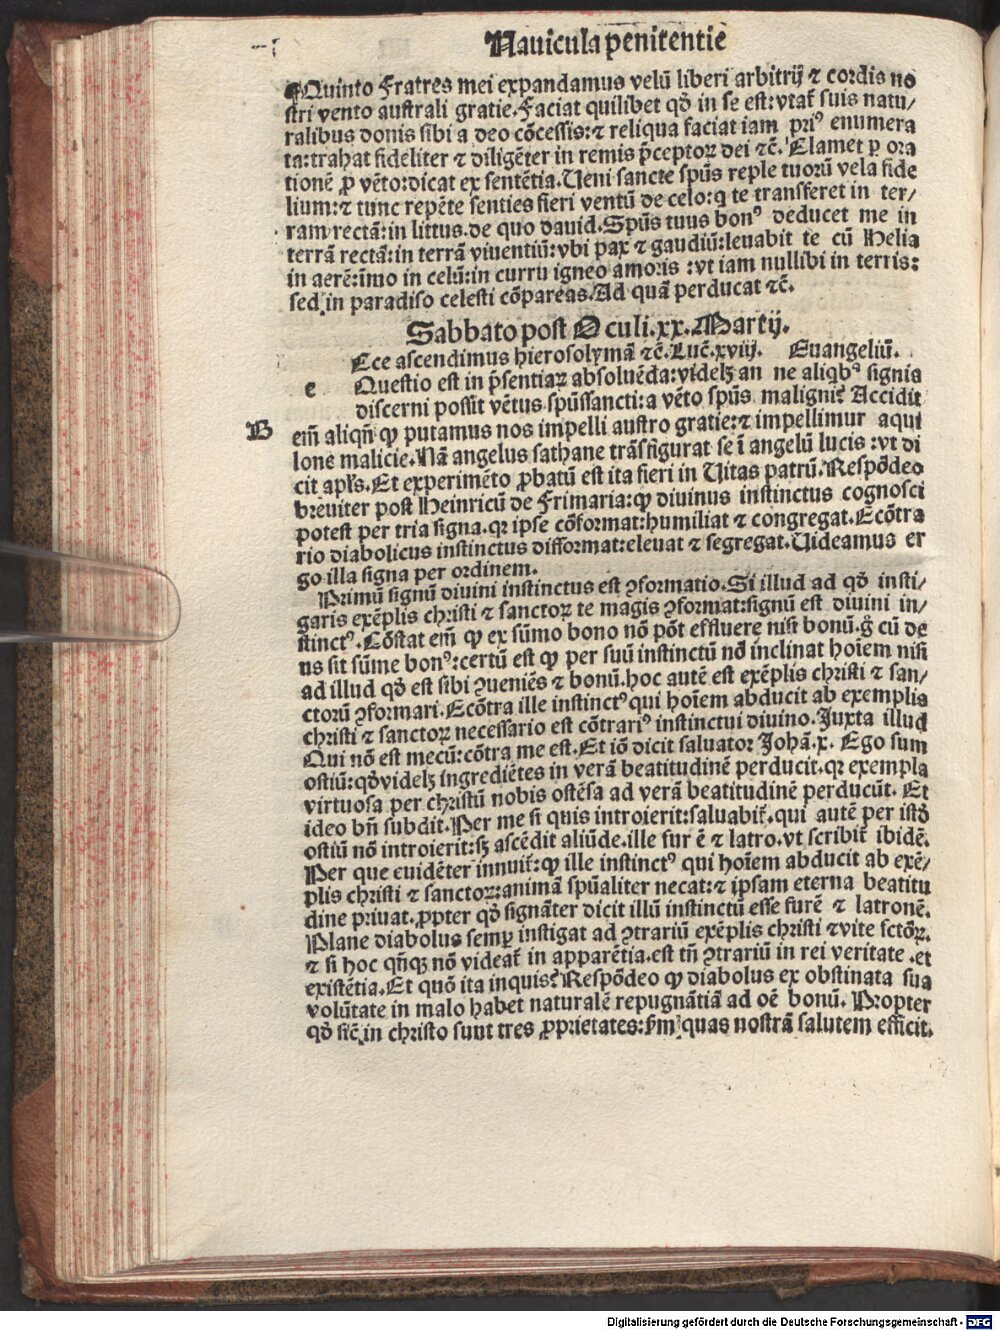 Nauicula penitentie
¶Quinto Fratres mei expandamus velū liberi arbitrij ⁊ cordis no
stri vento australi gratie. Faciat quilibet qd̓ in se est: vtat̄ suis natu/
ralibus donis sibi a deo cōcessis: ⁊ reliqua faciat iam priꝰ enumera
ta: trahat fideliter ⁊ diligēter in remis p̄ceptoꝝ dei ⁊c̄. Clamet ꝑ ora
tionē ꝓ vēto: dicat ex sentētia. Ueni sancte spūs reple tuorū vela fide
lium: ⁊ tunc repēte senties fieri ventū de celo: q te transferet in ter/
ram rectā: in littus. de quo dauid. Spūs tuus bonꝰ deducet me in
terrā rectā: in terrā viuentiū: vbi pax ⁊ gaudiū: leuabit te cū Helia
in aerē: īmo in celū: in curru igneo amoris : vt iam nullibi in terris:
sed in paradiso celesti cōpareas. Ad quā perducat ⁊c̄.
Sabbato post Oculi. xx. Martij.
Ecce ascendimus hierosolymā ⁊c̄. Luc̄. xviij. Euangeliū.
e Questio est in p̄sentiaꝝ absoluēda: videlꝫ an ne aliqbꝰ signis
discerni possit vētus spūssancti: a vēto spūs maligni: Accidit
B em̄ aliqn̄ ꝙ putamus nos impelli austro gratie: ⁊ impellimur aqui
lone malicie. Nā angelus sathane trāsfigurat se ī angelū lucis : vt di
cit apl̄s. Et experimēto ꝓbatū est ita fieri in Uitas patrū. Respōdeo
breuiter post Heinricū de Frimaria: ꝙ diuinus instinctus cognosci
potest per tria signa. qꝛ ipse cōformat: humiliat ⁊ congregat. Ecōtra
rio diabolicus instinctus difformat: eleuat ⁊ segregat. Uideamus er
go illa signa per ordinem.
Primū signū diuini instinctus est ꝯformatio. Si illud ad qd̓ insti/
garis exēplis christi ⁊ sanctoꝝ te magis ꝯformat: signū est diuini in/
stinctꝰ. Cōstat em̄ ꝙ ex sūmo bono nō pōt effluere nisi bonū. g̊ cū de
us sit sūme bonꝰ: certū est ꝙ per suū instinctū nō inclinat hoīem nisi
ad illud qd̓ est sibi ꝯueniēs ⁊ bonū. hoc autē est exēplis christi ⁊ san/
ctorū ꝯformari. Ecōtra ille instinctꝰ qui hoīem abducit ab exemplis
christi ⁊ sanctoꝝ necessario est cōtrariꝰ instinctui diuino. Juxta illud
Qui nō est mecū: cōtra me est. Et iō dicit saluator Johā. x. Ego sum
ostiū: qd̓ videlꝫ ingrediētes in verā beatitudinē perducit. qꝛ exempla
virtuosa per christū nobis ostēsa ad verā beatitudinē perducūt. Et
ideo bn̄ subdit. Per me si quis introierit: saluabit̄. qui autē per istd̓
ostiū nō introierit: sꝫ ascēdit aliūde. ille fur ē ⁊ latro. vt scribit̄ ibidē.
Per que euidēter innuit̄: ꝙ ille instinctꝰ qui hoīem abducit ab exē/
plis christi ⁊ sanctoꝝ: animā spūaliter necat: ⁊ ipsam eterna beatitu
dine priuat. ꝓpter qd̓ signāter dicit illū instinctū esse furē ⁊ latronē.
Plane diabolus semꝑ instigat ad ꝯtrariū exēplis christi ⁊ vite sctōꝝ.
⁊ si hoc qn̄qꝫ nō videat̄ in apparētia. est tn̄ ꝯtrariū in rei veritate . et
existētia. Et quō ita inquis: Respōdeo ꝙ diabolus ex obstinata sua
volūtate in malo habet naturalē repugnātiā ad oē bonū. Propter
qd̓ sic̄ in christo sunt tres ꝓprietates: ꝑm quas nostrā salutem efficit.
Digitalisierung gefördert durch die Deutsche Forschungsgemeinschaft - DFG